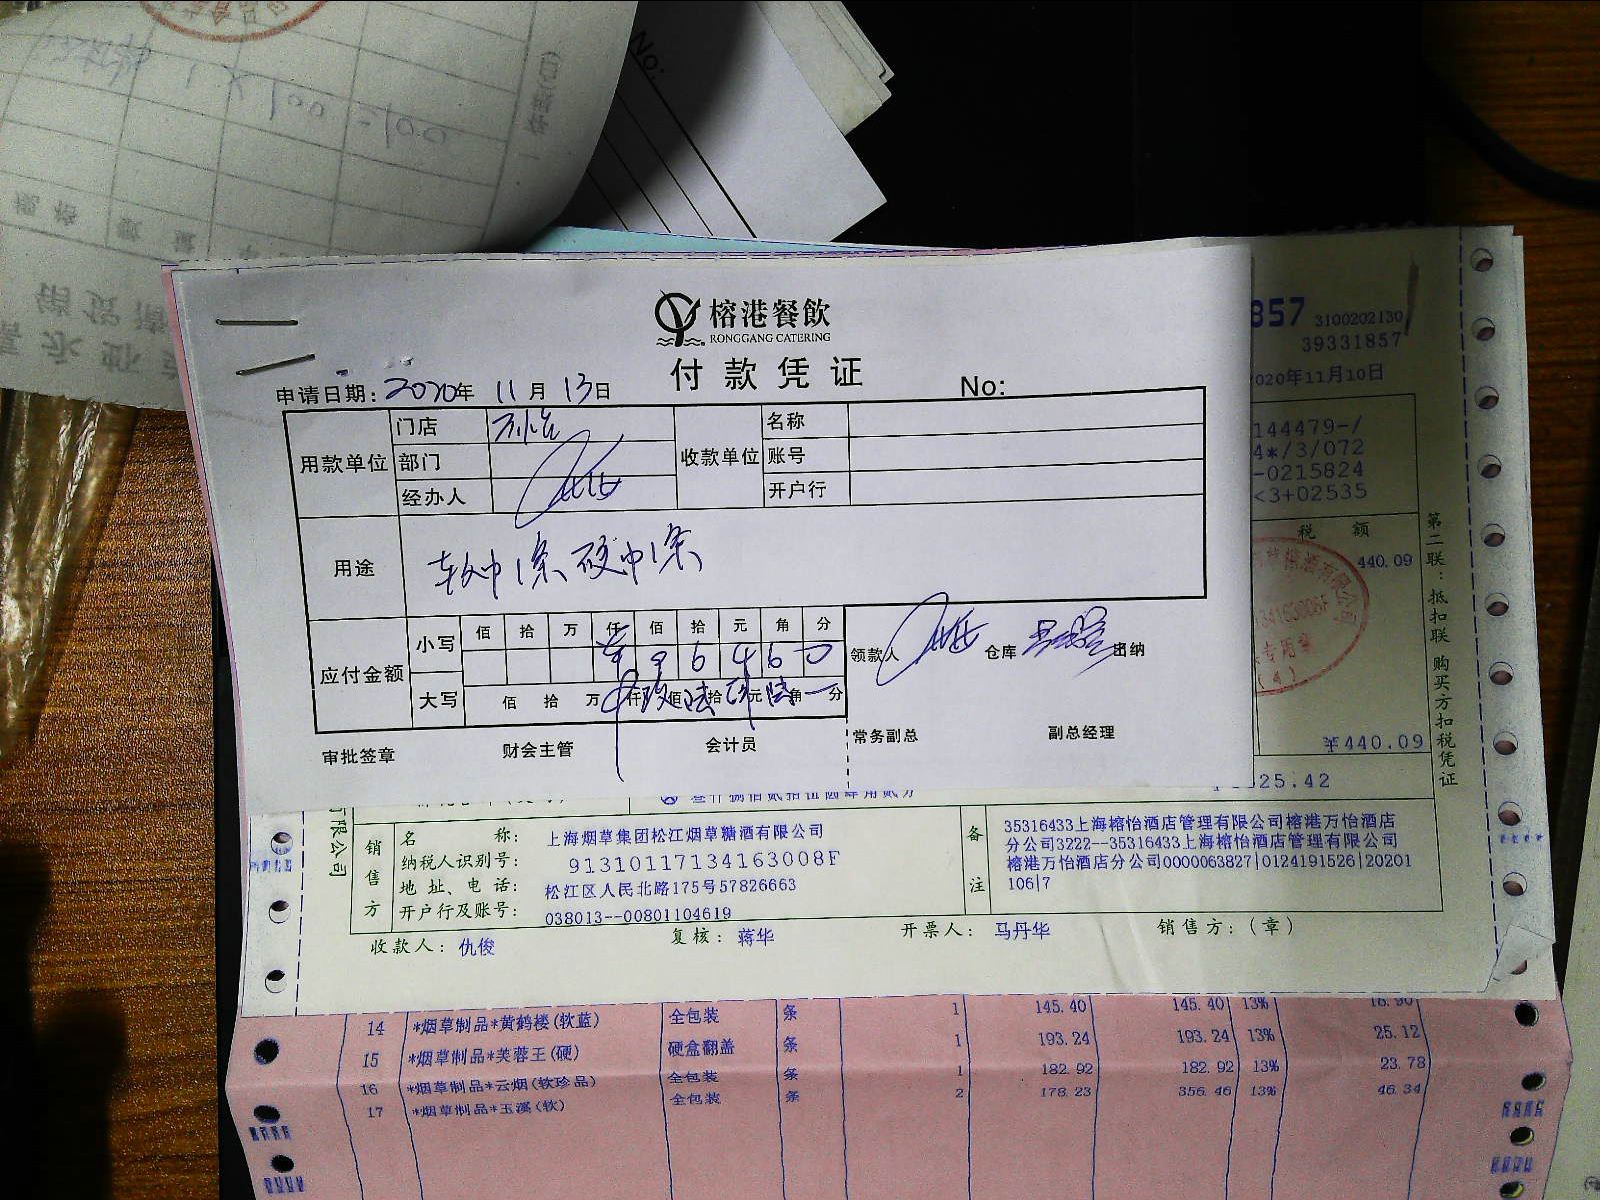 No:
1×100=100
榕港餐飲
RONGGANG CATERING
付款凭证
申请日期: 2020年 11月 13日
No:
用款单位
门店 万怡
部门
经办人
收款单位
名称
账号
开户行
用途
软中1条、硬中1条
应付金额
小写
佰 拾 万 仟 佰 拾 元 角 分
9 6 4 6 0
大写
佰 拾 万 仟 玖 佰 陆 拾 肆 元 陆 角 一 分
领款人
仓库
出纳
审批签章
财会主管
会计员
常务副总
副总经理
857 3100202130
39331857
2020年11月10日
144479-/
4*/3/072
-0215824
<3+02535
税 额
440.09
¥440.09
25.42
第二联:抵扣联 购买方扣税凭证
有限公司
销售方
名 称: 上海烟草集团松江烟草糖酒有限公司
纳税人识别号: 91310117134163008F
地 址、电 话: 松江区人民北路175号57826663
开户行及账号: 038013--00801104619
备注
35316433上海榕怡酒店管理有限公司榕港万怡酒店
分公司3222--35316433上海榕怡酒店管理有限公司
榕港万怡酒店分公司0000063827|0124191526|20201
106|7
收款人: 仇俊
复核: 蒋华
开票人: 马丹华
销售方:(章)
14 *烟草制品*黄鹤楼(软蓝) 全包装 条 1 145.40 145.40 13% 18.90
15 *烟草制品*芙蓉王(硬) 硬盒翻盖 条 1 193.24 193.24 13% 25.12
16 *烟草制品*云烟(软珍品) 全包装 条 1 182.92 182.92 13% 23.78
17 *烟草制品*玉溪(软) 全包装 条 2 178.23 356.46 13% 46.34